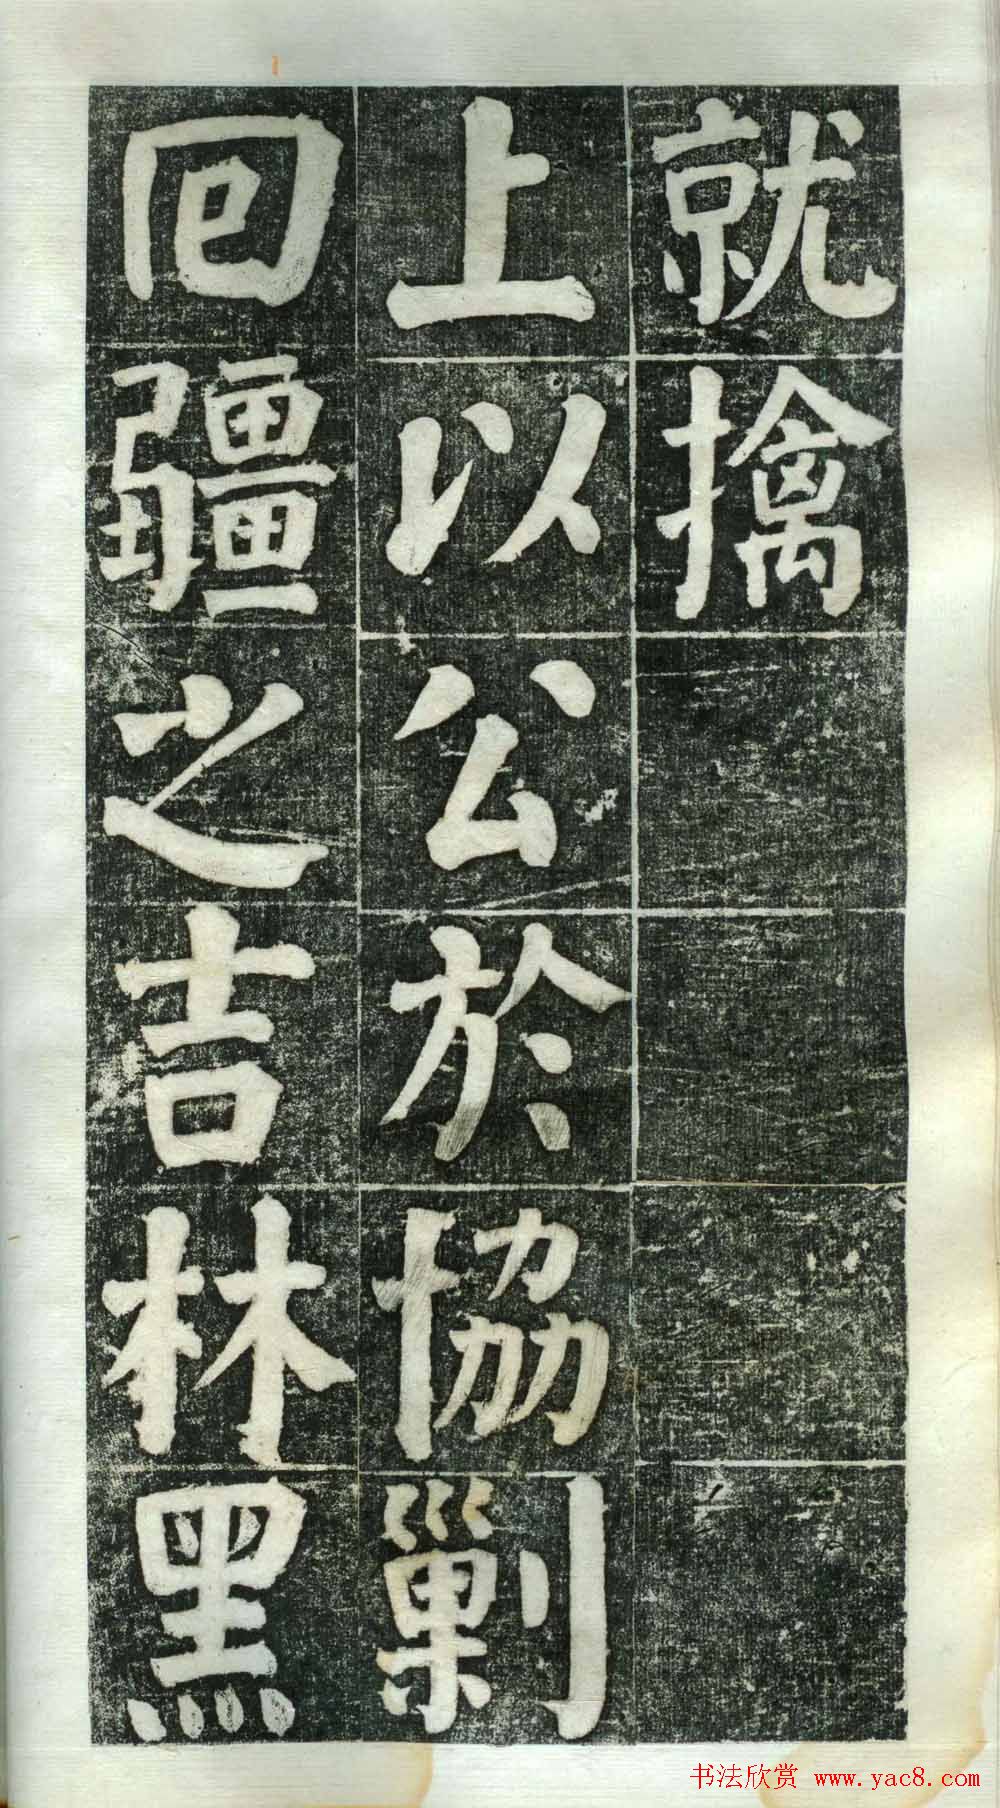 就擒
上以公於協剿
回疆之吉林黑
书法欣赏 www.yac8.com